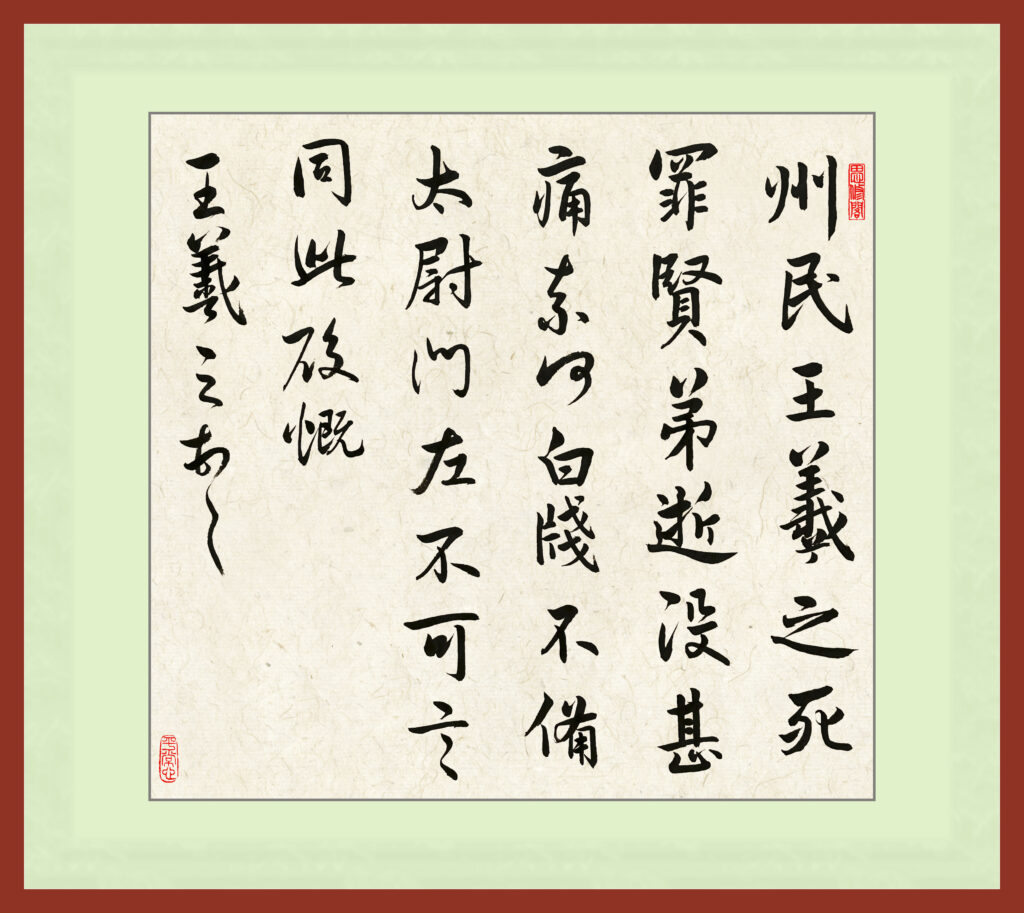 州民王羲之死
罪賢弟逝没甚
痛奈何白牋不備
太尉門左不可言
同此慨
王羲之